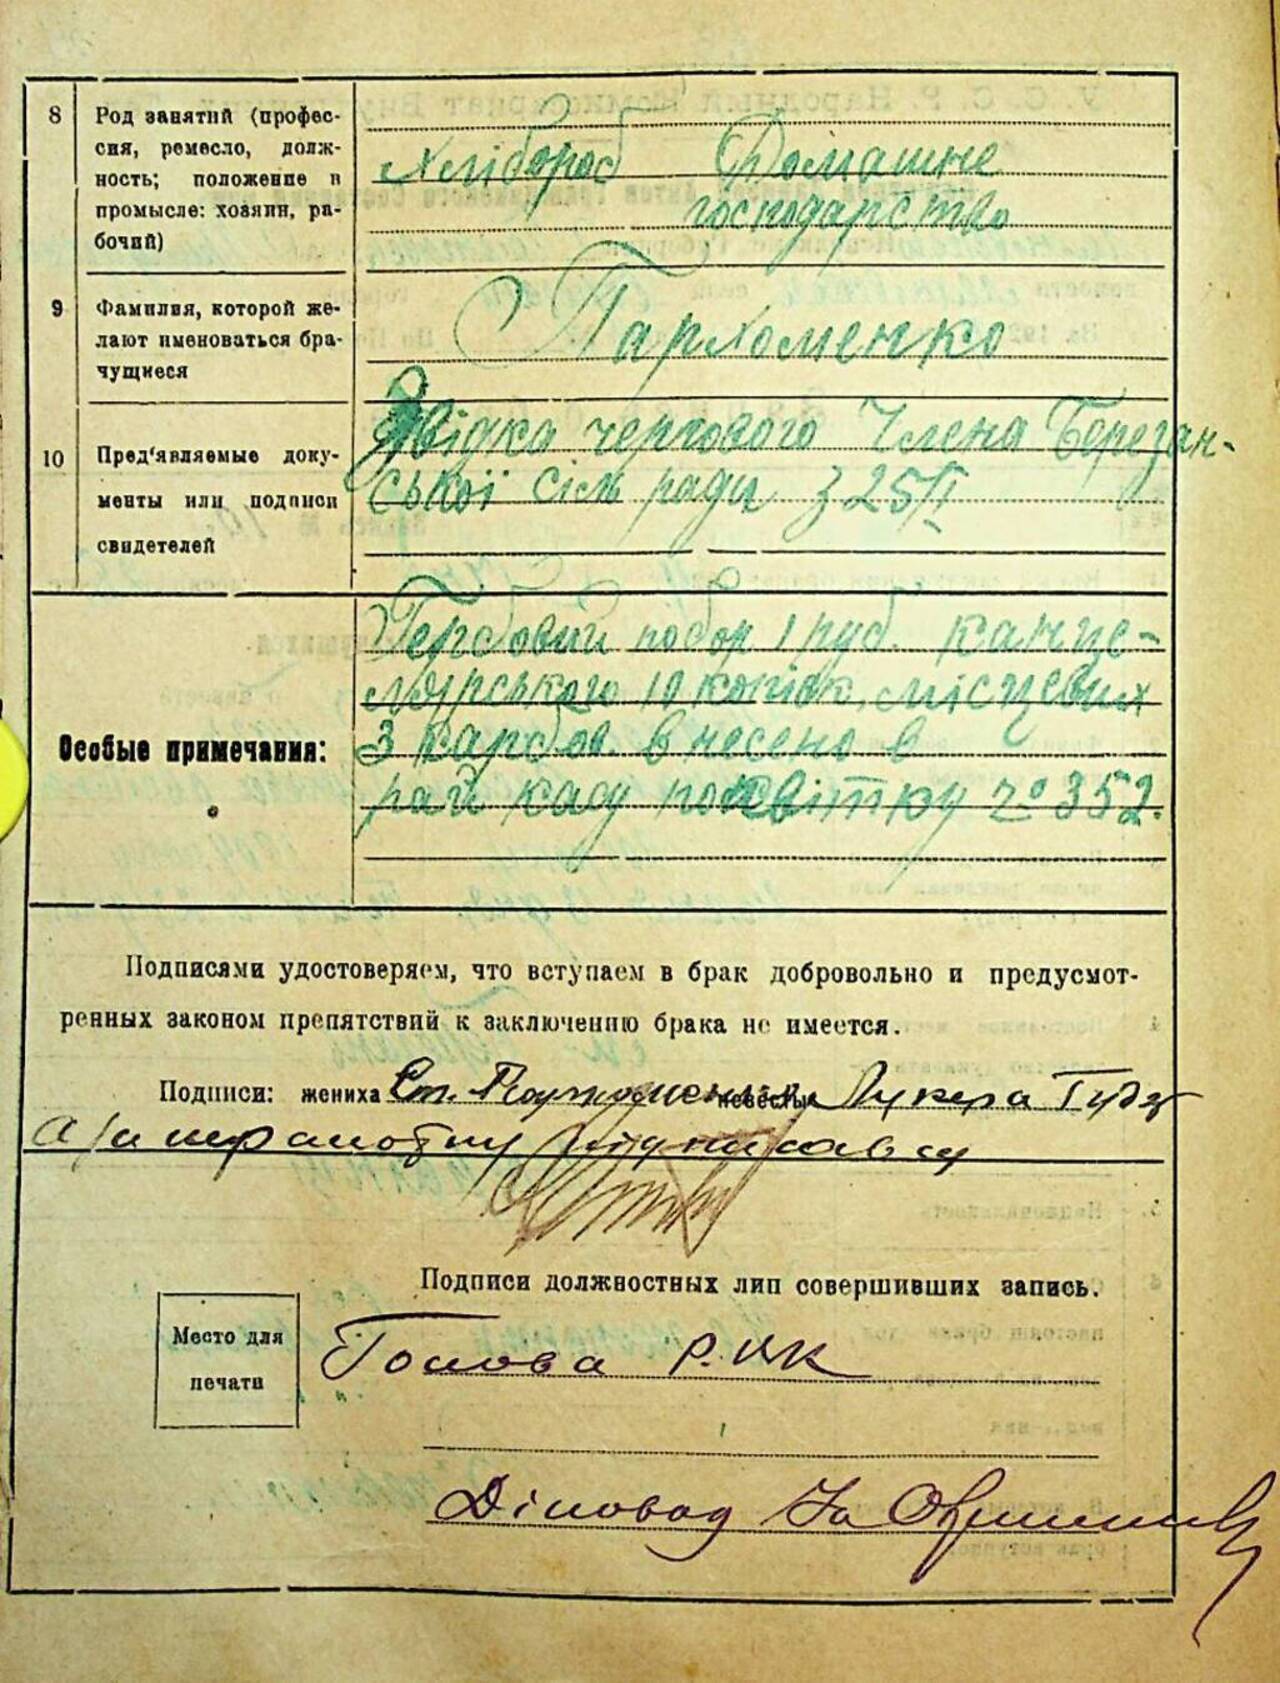 8
Род занятий (профес-
сия, ремесло, долж-
ность; положение в
промысле: хозяин, ра-
бочий)
Хлібороб Домашне
господарство
9
Фамилия, которой же-
лают именоваться бра-
чущиеся
Пархоменко
10
Пред'являемые доку-
менты или подписи
свидетелей
Звідка чергового Члена Березан-
ської сіль ради з 25/II
Особые примечания:
Гербовий побор 1 руб. канце-
лярського 10 копійок, місцевих
3 карбов. внесено в
рай касу по квітку № 352.
Подписями удостоверяем, что вступаем в брак добровольно и предусмот-
ренных законом препятствий к заключению брака не имеется.
Подписи: жениха Ст. Пархоменко невесты Лукера Гудз
а за неграмотну підписався
Подписи должностных лиц совершивших запись.
Место для
печати
Голова Р.В.К
Діловод